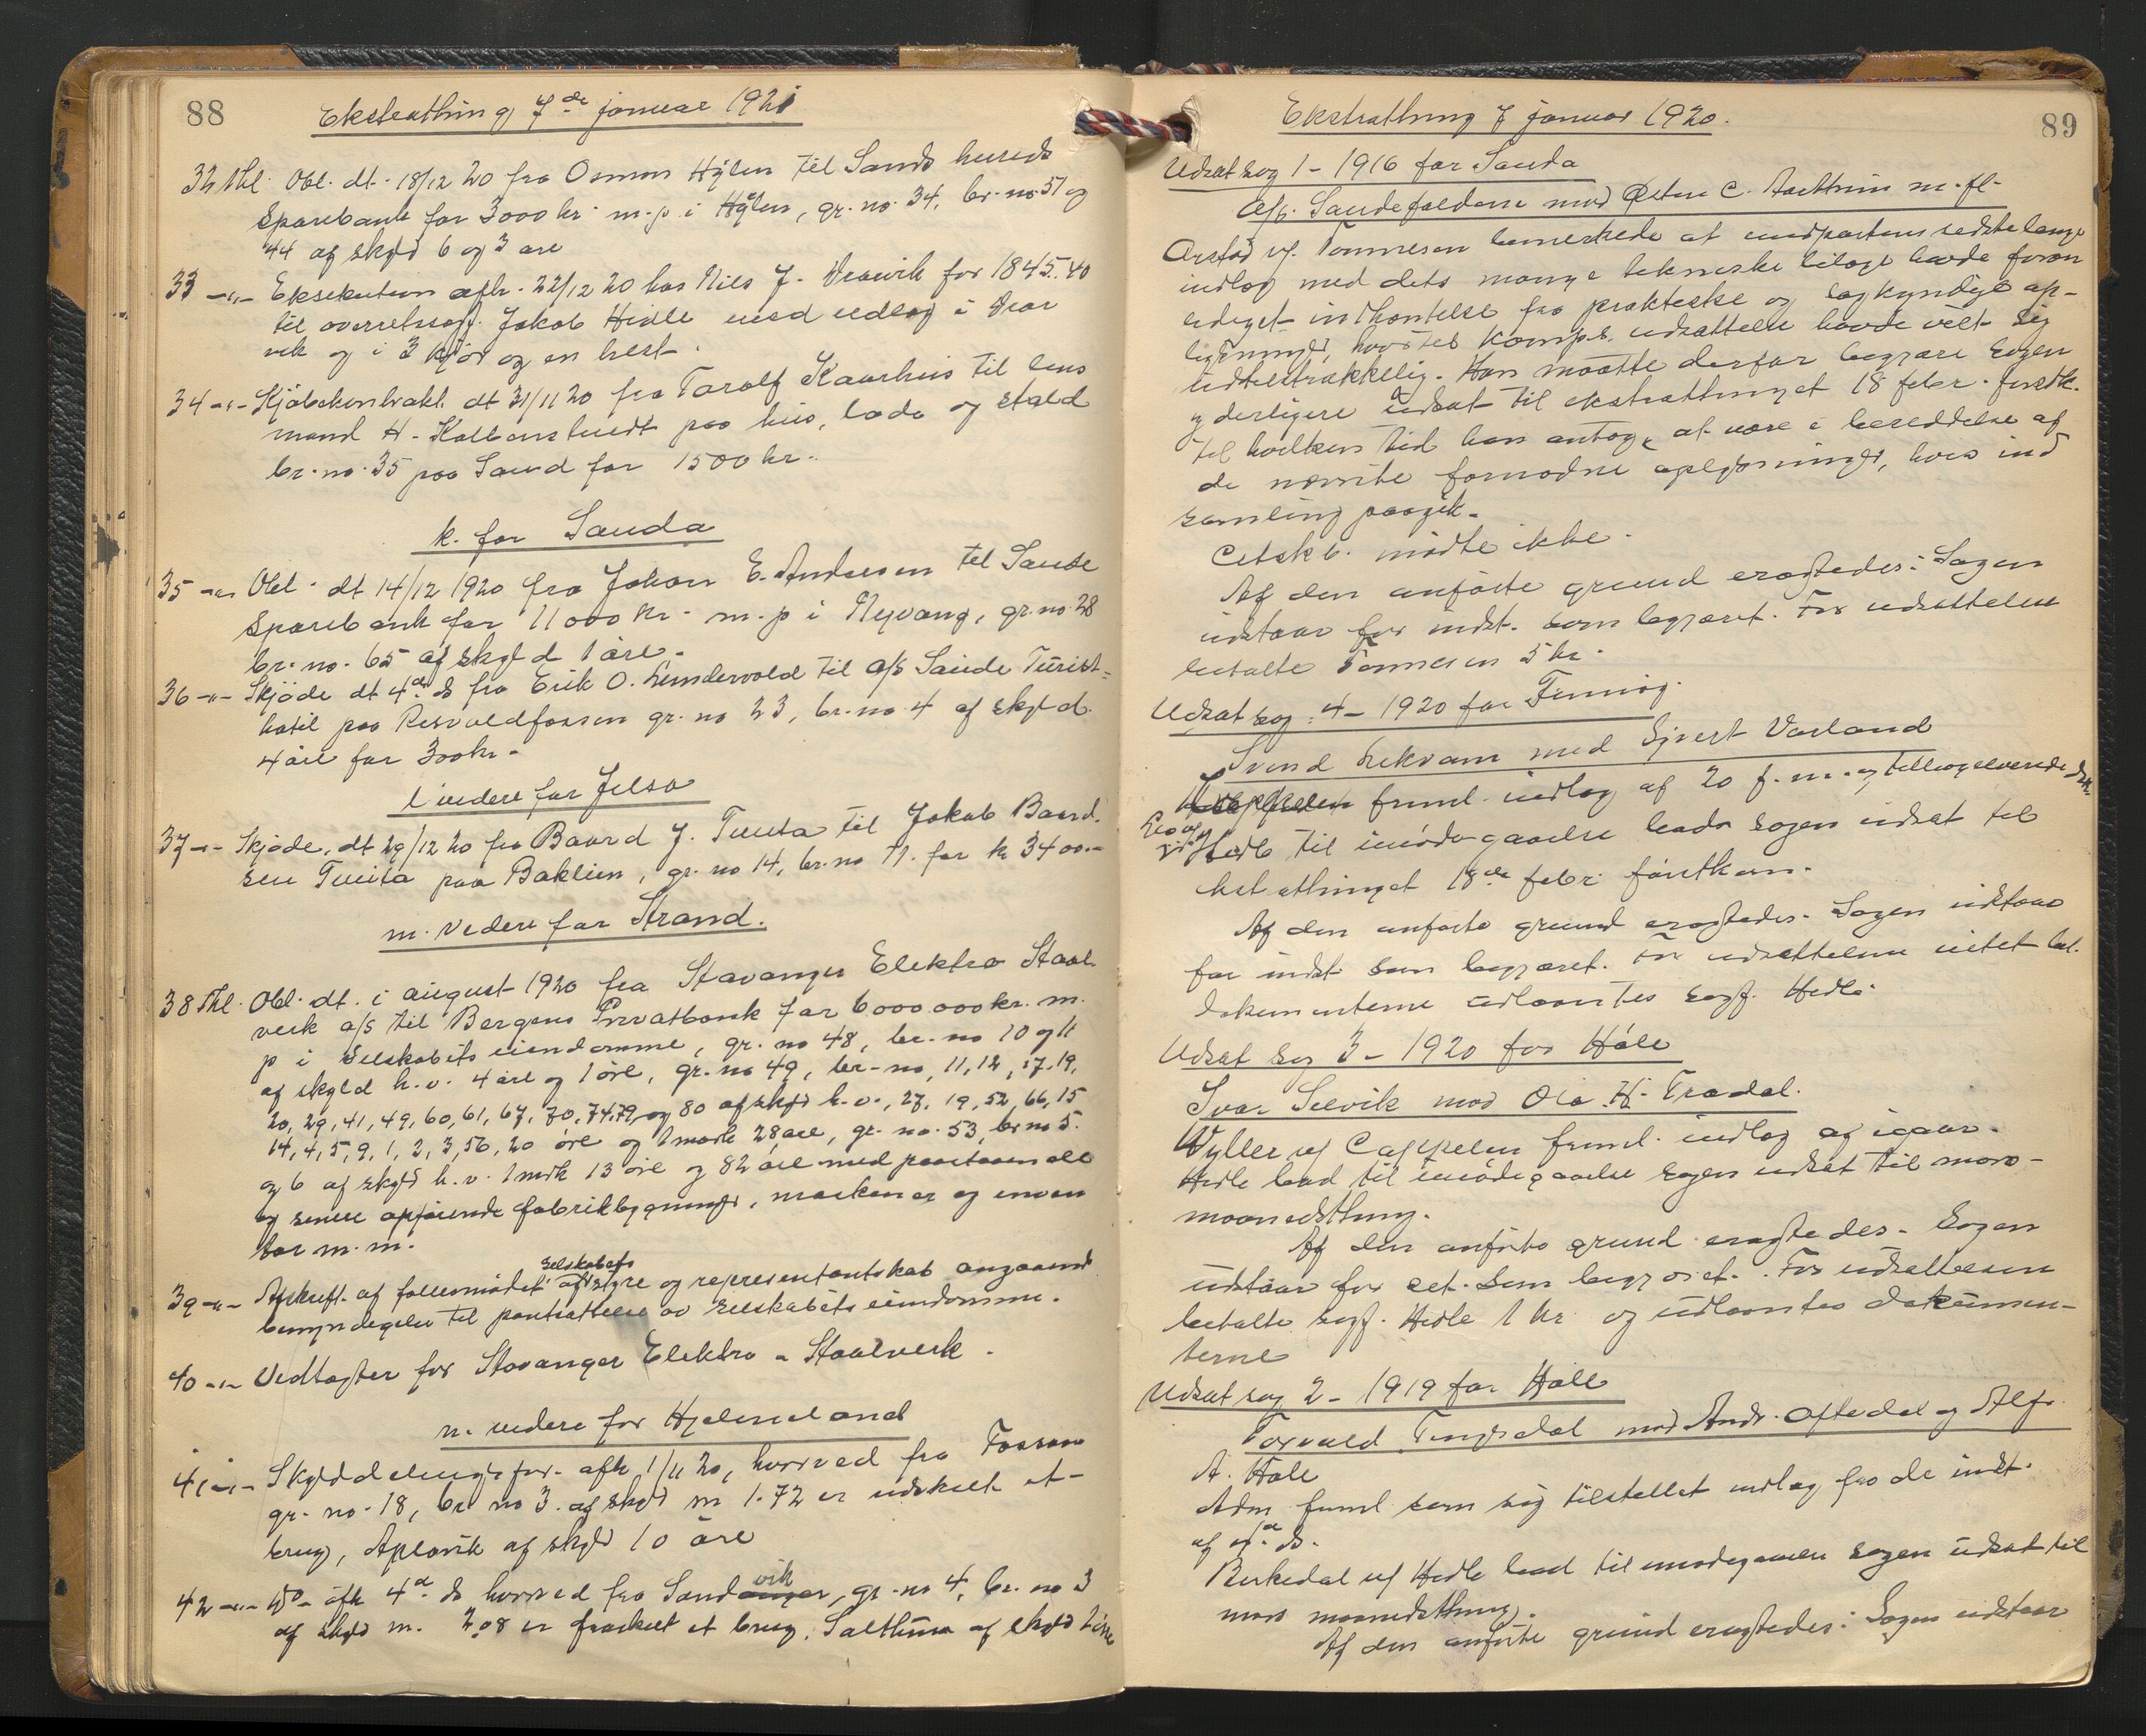 88
Ekstrathing 7de januar 1921
32 thl. Obl. dt. 18/12 20 fra Osmon Hylen til Sands hereds
Sparebank for 3000 kr. m. p. i Hylen, gr. no. 34, br. no. 51 og
44 af skyld 6 og 3 øre
33 -"- Eksekution afh. 22/12 20 hos Nils J. Dravik for 1845.40
til overretssagf. Jakob Hidle med udlæg i Drar
vik og i 3 kjør og en hest.
34 -"- Kjøbekontrakt dt 31/11 20 fra Torolf Kaarhus til lens
mand H. Kolbenstvedt paa hus, lade og stald
br. no. 35 paa Sand for 1500 kr.
k. for Sauda
35 -"- Obl. dt 14/12 1920 fra Johan E. Andersen til Saude
Sparebank for 11000 kr. m. p i Nyvang, gr. no. 28
br. no. 65 af skyld 1 øre.
36 -"- Skjøde dt 4de ds fra Erik O. Lundervold til a/s Saude Turist-
hotil paa Resvoldfossen gr. no 23, br. no 4 af skyld
4 øre for 300 kr.
l videre for Jelsa
37 -"- Skjøde, dt 29/12 20 fra Baard J. Tveita til Jakob Baard.
sen Tveita paa Baklien, gr. no 14, br. no 11. for kr 3400.-
m. videre for Strand.
38 Thl. Obl. dt. i august 1920 fra Stavanger Elektro Staal
verk a/s til Bergens Privatbank for 6000.000 kr. m.
p i Selskabets eiendomme, gr. no 48, br. no 10 og 11
af skyld h. v. 4 øre og 1 øre, gr. no 49, br. no, 11, 12, 17, 19,
20, 29, 41, 49, 60, 61, 67, 70, 74, 79, og 80 af skyld h. v., 27, 19, 52, 66, 15
14, 4, 5, 9, 1, 2, 3, 56, 20 øre og 1 mark 28 øre, gr. no. 53, br no 5.
og 6 af skyld h. v. 1 mrk 13 øre og 82 øre med paastaaende
og senere opførende fabrikbygninger, maskiner og inven
tar m. m.
39 -"- Afskrift af fællesmødet af selskabets styre og representantskab angaaende
bemyndigelse til pantsættelse av selskabets eiendomme.
40 -"- Vedtægter for Stavanger Elektro - Staalverk.
n. videre for Hjelmeland
41 -"- Skylddelingsfor. afh 1/11 20, hvorved fra Fossan
gr. no. 18, br no 3. af skyld m 1.72 er udskilt et
brug, Aplavik af skyld 10 øre
42 -"- Do. afh 4d ds hvorved fra Sandvik, gr. no 4, br. no 3
af skyld m. 2.08 er fraskilt et brug, Saltheim af skyld 2 øre
89
Ekstrathing 7 januar 1920.
Udsat sag 1 - 1916 for Sauda
a/s. Saudefaldene mod Østen C. Aarthun m. fl.
Aarstad v/. Tønnesen bemerkede at modpartens sidste lange
indlæg med dets mange tekniske bilage havde foran
lediget indhentelse fra praktiske og sagkyndige op-
lysninger, hvortil komps. udsættelse havde vist sig
utilstrækkelig. Han maatte derfor begjære sagen
yderligere udsat til ekstrathinget 18 febr. førstk.
til hvilken tid han antog, at være i besiddelse af
de nævnte fornødne oplysninger, hvis ind
samling paagik.
Citskb. mødte ikke.
Af den anførte grund eragtedes: Sagen
udstaar for indst. som begjæret. For udsættelsen
betalte Tønnesen 5 kr.
Udsat sag: 4 - 1920 for Finnøy.
Svend Lekvam mod Sjvert Varland
freml. indlæg af 20 f. m. og
Hidle til imødegaaelse bad sagen udsat til
kstrathinget 18de febr. førstkom.
Af den anførte grund eragtedes: Sagen udstaar
for indst. som begjæret. For udsættelsen intet bet.
Dokumenterne udlaantes sagf. Hidle.
Udsat sag 3 - 1920 for Høle
Ivar Selvik mod Ola H. Tradal.
Wyller v/ Cappelen freml. indlæg af igaar.
Hidle bad til imødegaaelse sagen udsat til mars-
maanedsthing.
Af den anførte grund eragtedes. Sagen
udstaar for cet. som begjæret. For udsættelsen
betalte sagf. Hidle 1 kr. og udlaantes dokumen-
terne
Udsat sag 2 - 1919 for Høle
Torvald Tengesdal mod Andr. Oftedal og Alfr.
A. Høle
Adm freml som sig tilstillet indlæg fra de indst.
af ds.
Birkedal v/ Hidle bad til imødegaaelse sagen udsat til
mars maanedsthing.
Af den anførte grund eragtedes: Sagen udstaar